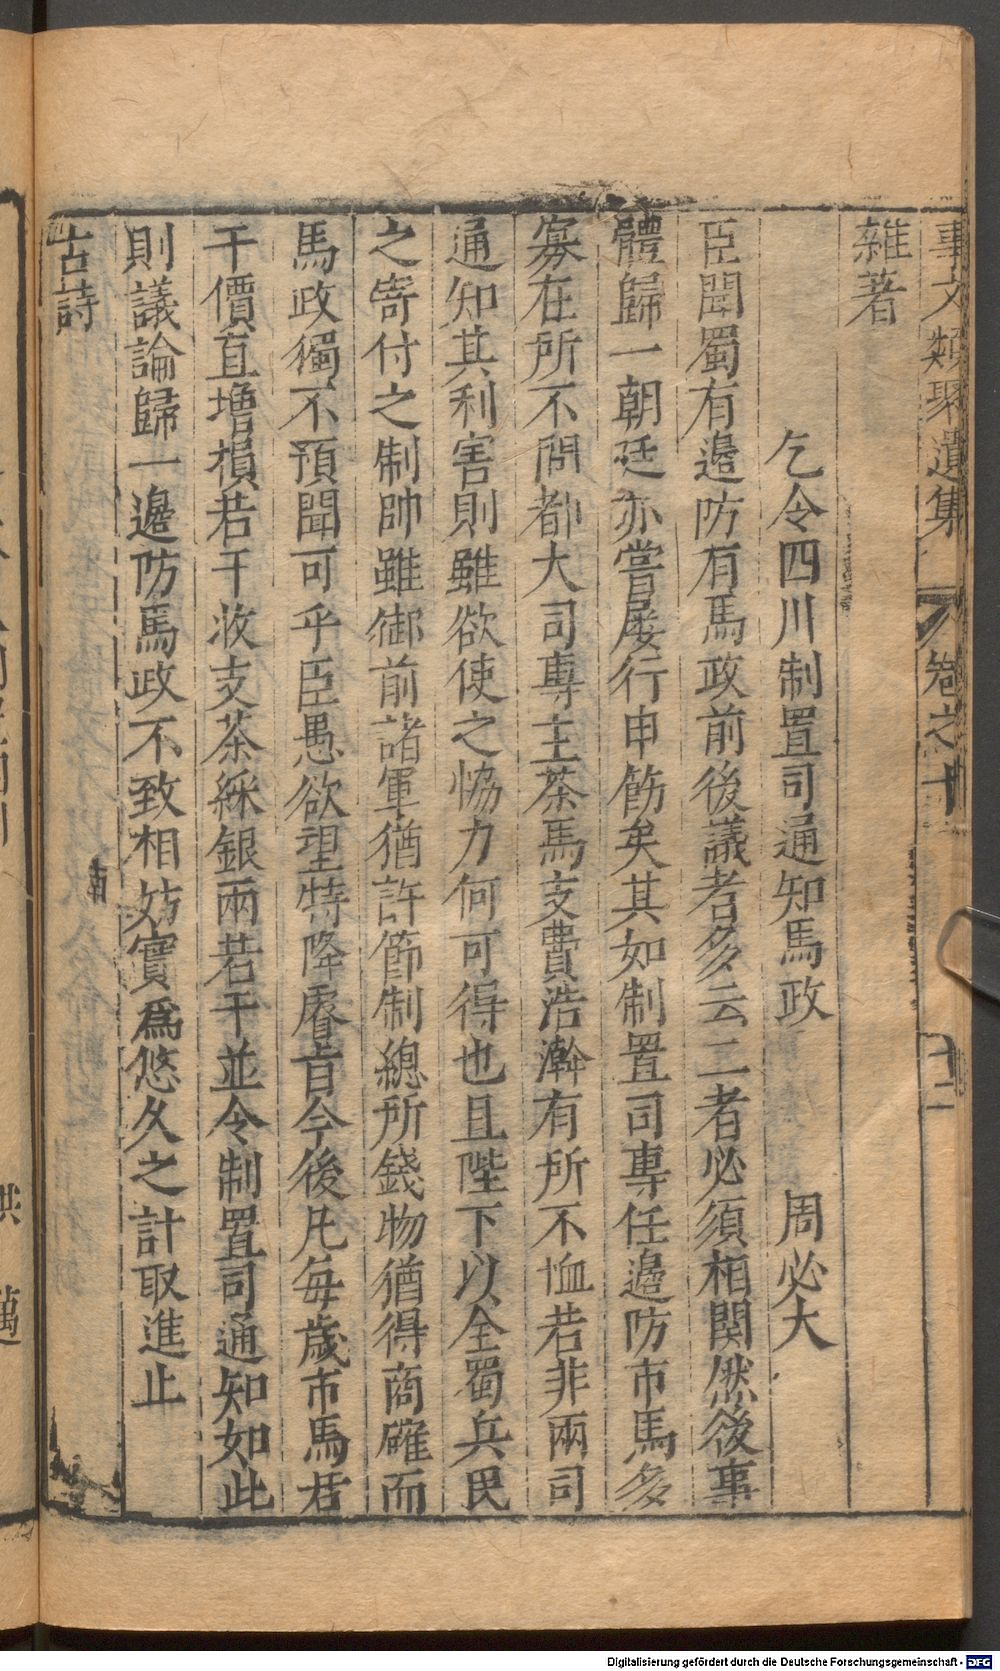 事文類聚遺集
卷之十
十二
雜著
乞令四川制置司通知馬政 周必大
臣聞蜀有邊防有馬政前後議者多云二者必須相関然後事
體歸一朝廷亦嘗屡行申飭矣其如制置司專任邊防市馬多
寡在所不問都大司專主茶馬支費浩瀚有所不恤若非兩司
通知其利害則雖欲使之恊力何可得也且陛下以全蜀兵民
之寄付之制帥雖御前諸軍猶許節制總所錢物猶得商確而
馬政獨不預聞可乎臣愚欲望特降睿旨今後凡每歲市馬若
干價直增損若干收支茶綵銀兩若干並令制置司通知如此
則議論歸一邊防馬政不致相妨實爲悠久之計取進止
古詩
洪 邁
Digitalisierung gefördert durch die Deutsche Forschungsgemeinschaft - DFG